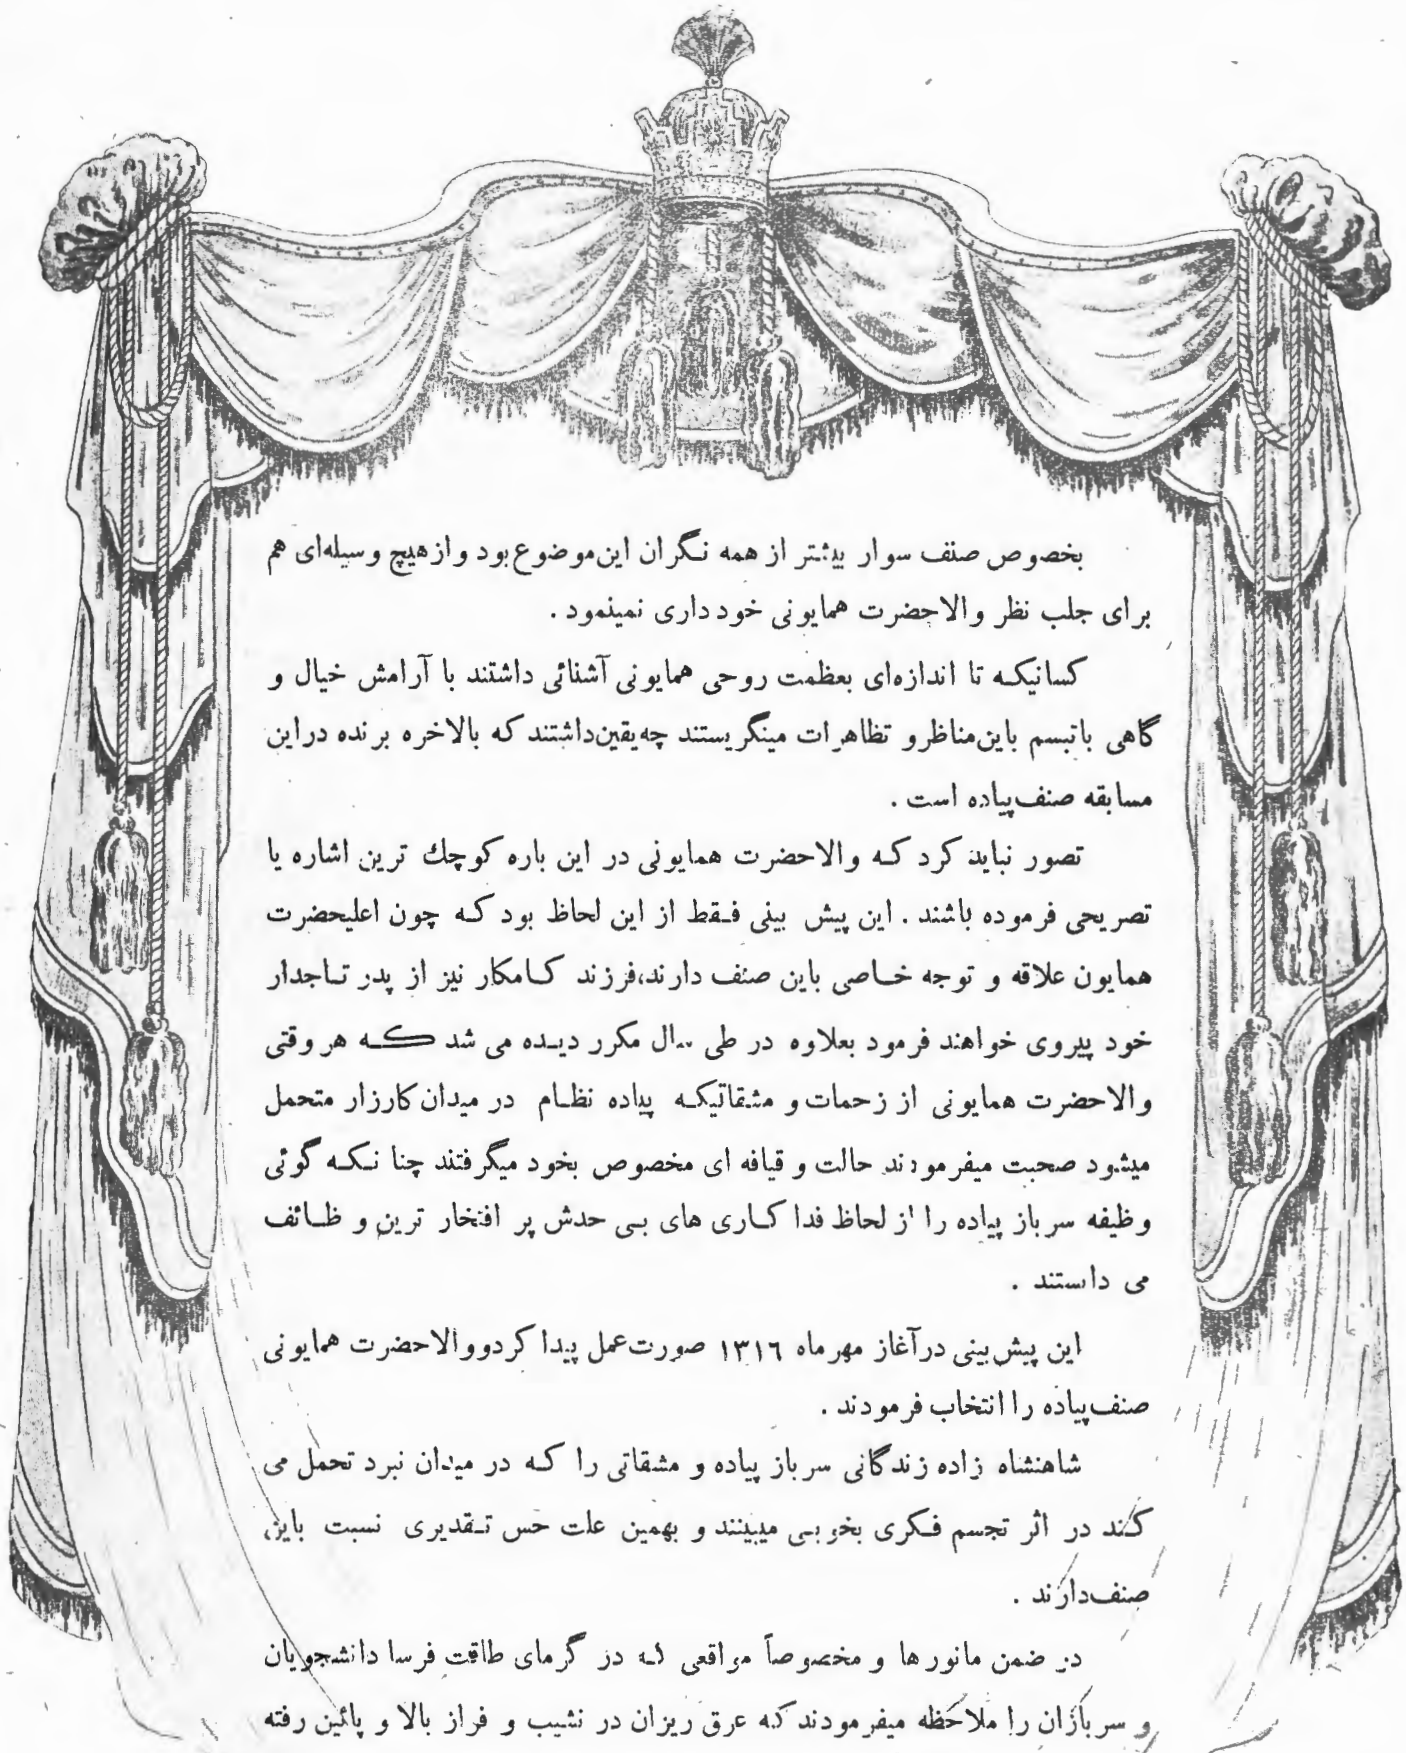 بخصوص صنف سوار بیشتر از همه نگران این‌موضوع بود و از هیچ وسیله‌ای هم
برای جلب نظر والاحضرت همایونی خودداری نمینمود .
کسانیکه تا اندازه‌ای بعظمت روحی همایونی آشنائی داشتند با آرامش خیال و
گاهی باتبسم باین‌مناظر و تظاهرات مینگریستند چه‌یقین‌داشتند که بالاخره برنده دراین
مسابقه صنف‌پیاده است .
تصور نباید کرد که والاحضرت همایونی در این باره کوچك ترین اشاره یا
تصریحی فرموده باشند . این پیش بینی فقط از این لحاظ بود که چون اعلیحضرت
همایون علاقه و توجه خاصی باین صنف دارند،فرزند کامکار نیز از پدر تاجدار
خود پیروی خواهند فرمود بعلاوه در طی سال مکرر دیده می شد که هر وقتی
والاحضرت همایونی از زحمات و مشقاتیکه پیاده نظام در میدان کارزار متحمل
میشود صحبت میفرمودند حالت و قیافه ای مخصوص بخود میگرفتند چنا نکه گوئی
وظیفه سرباز پیاده را از لحاظ فدا کاری های بی حدش پر افتخار ترین و ظائف
می دانستند .
این پیش‌بینی درآغاز مهرماه ۱۳۱٦ صورت‌عمل پیدا کردووالاحضرت همایونی
صنف‌پیاده را انتخاب فرمودند .
شاهنشاه زاده زندگانی سرباز پیاده و مشقاتی را که در میدان نبرد تحمل می
کند در اثر تجسم فکری بخوبی میبینند و بهمین علت حس تقدیری نسبت باین
صنف‌دارند .
در ضمن مانور ها و مخصوصاً مواقعی که در گرمای طاقت فرسا دانشجویان
و سربازان را ملاحظه میفرمودند که عرق ریزان در نشیب و فراز بالا و پائین رفته